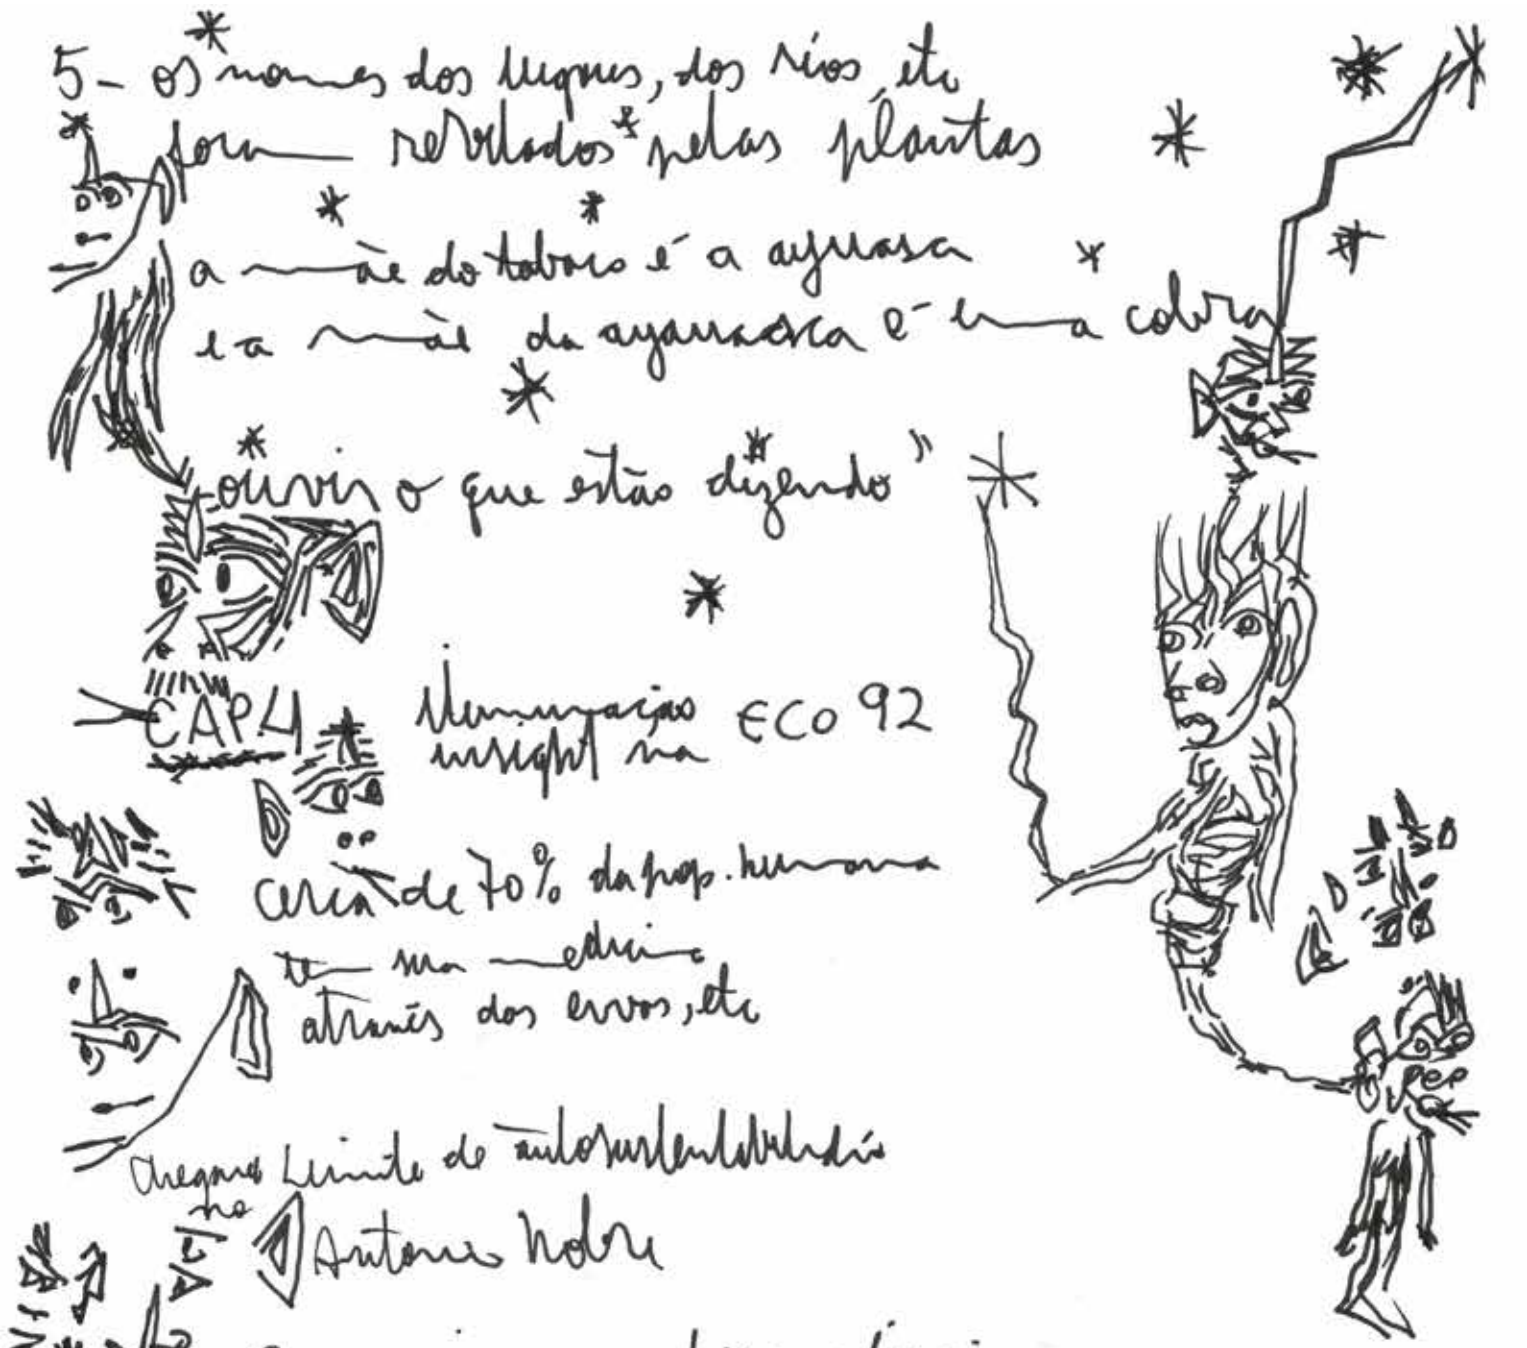 5- os nomes dos lugares, dos rios, etc
foram revelados pelas plantas
a mãe do tabaco é a ayuasca
e a mãe da ayauasca é uma cobra
ouvir o que estão dizendo"
CAP.4
Iluminação
insight na ECO 92
cerca de 70% da pop. humana
tem sua medicina
através das ervas, etc
chegamos limite de autosustentabilidade
no
Antonio Nobre